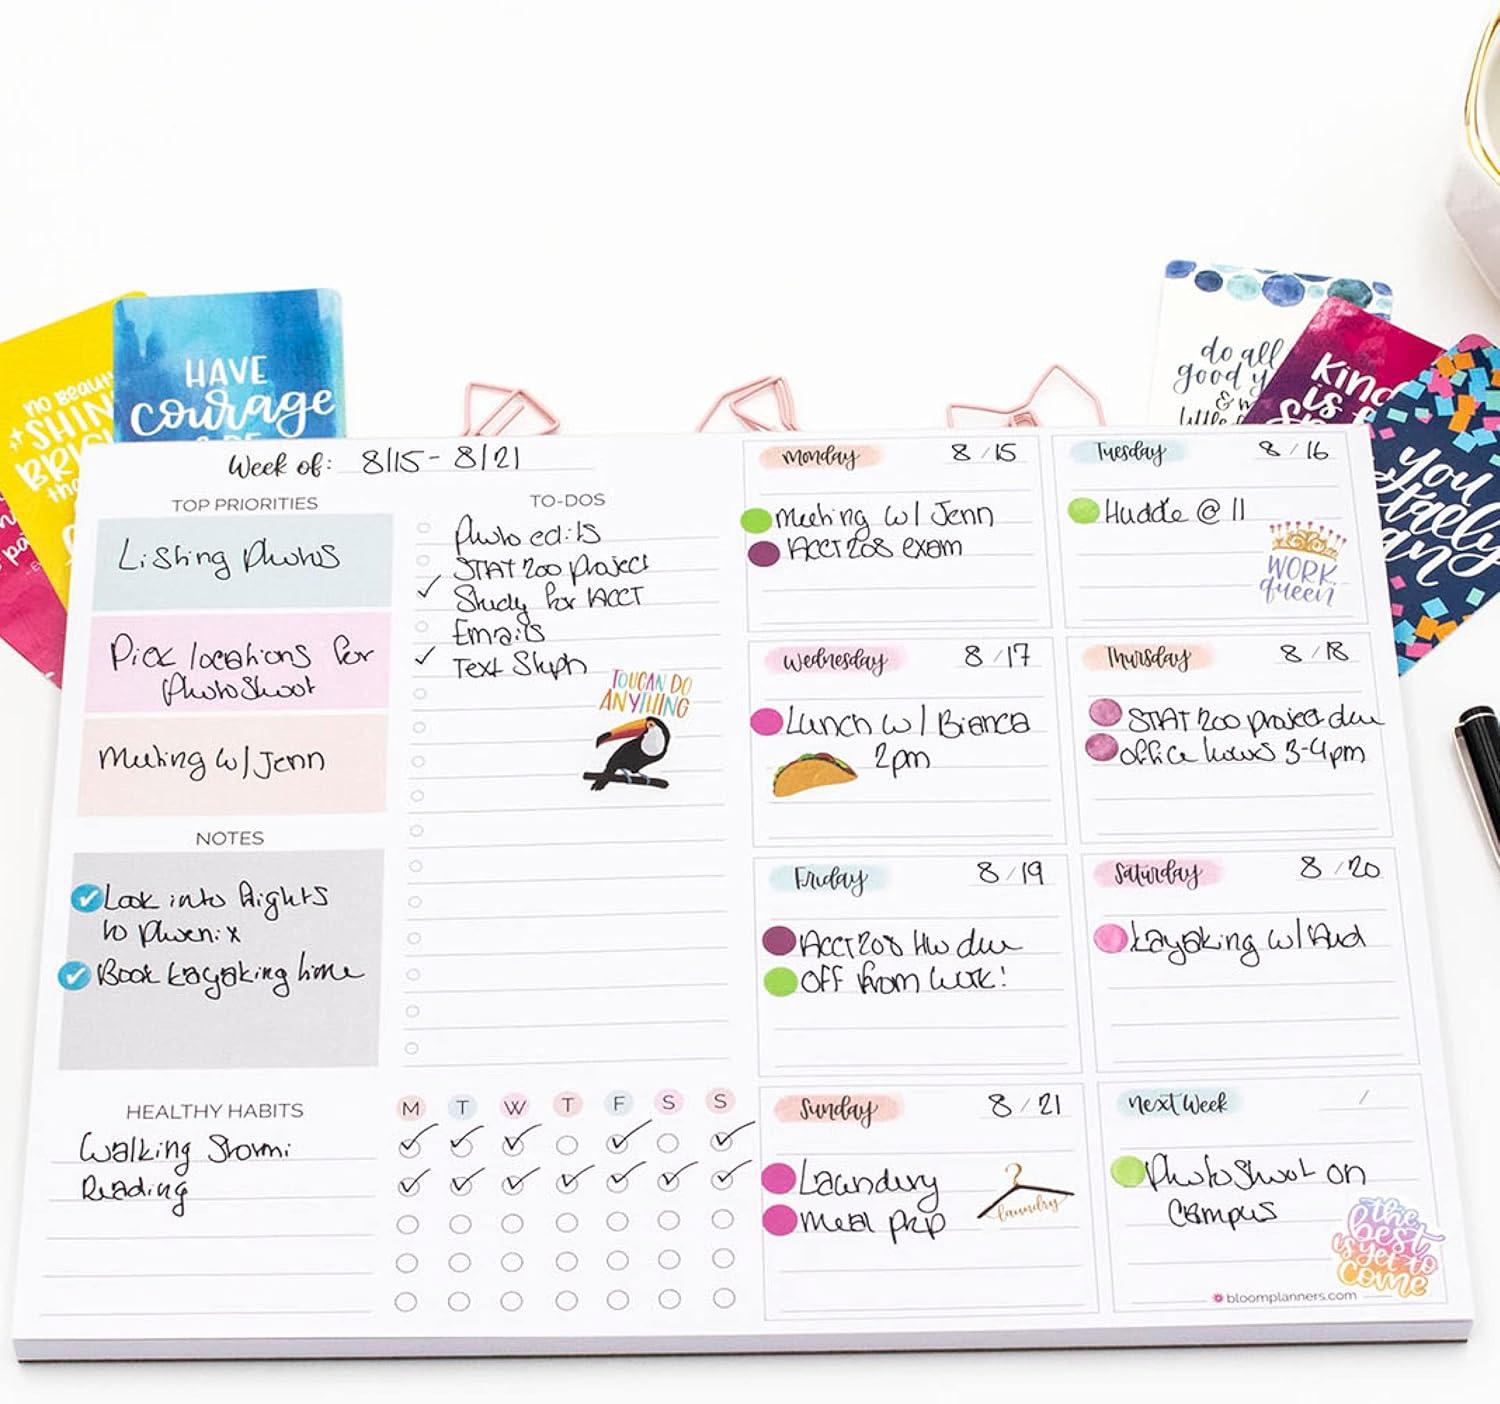 no beauty
SHINES
BRIGHTER
HAVE
courage
& BE
do all
good y
& m
little
Kind
is f
you
Week of: 8/15 - 8/21
TOP PRIORITIES
Listing Photos
Pick locations for
Photoshoot
Meeting w/ Jenn
NOTES
Look into flights
to Phoenix
Book Kayaking time
TO-DOS
Photo edits
STAT 200 project
Study for ACCT
Emails
Text Steph
TOUCAN DO
ANYTHING
HEALTHY HABITS
M T W T F S S
Walking Stormi
Reading
Monday 8/15
Meeting w/ Jenn
ACCT 208 exam
Tuesday 8/16
Huddle @ 11
WORK
queen
Wednesday 8/17
Lunch w/ Bianca
2pm
Thursday 8/18
STAT 200 project due
office hours 3-4pm
Friday 8/19
ACCT 208 HW due
OFF from work!
Saturday 8/20
Kayaking w/ Aud
Sunday 8/21
Laundry
Meal prep
laundry
next week /
Photoshoot on
Campus
the
best
is yet to
come
bloomplanners.com